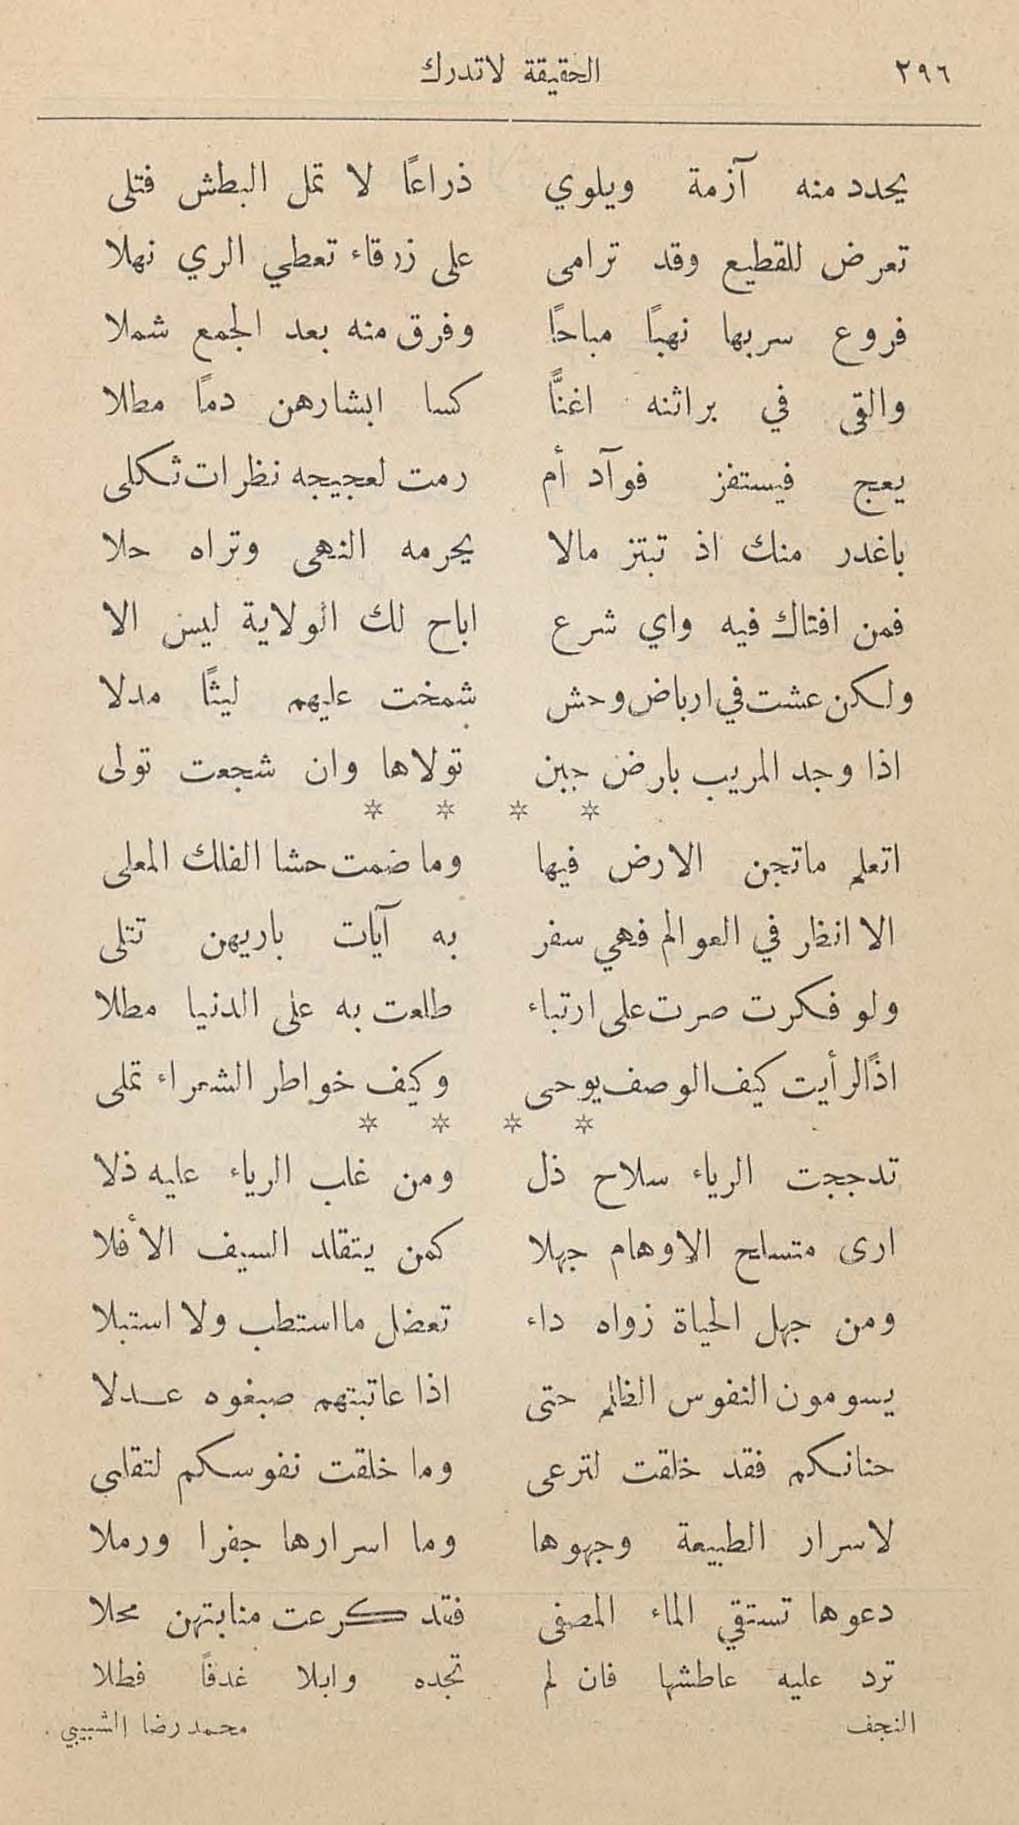 ٢٩٦ الحقيقة لاتدرك
يحدد منه آزمة ويلوي ذراعًا لا تمل البطش فتلى
تعرض للقطيع وقد ترامى على زرقاء تعطي الري نهلا
فروع سربها نهبًا مباحًا وفرق منه بعد الجمع شملا
والقى في براثنه اغنًّا كسا ابشارهن دمًا مطلا
يعج فيستفز فوآد أم رمت لعجيجه نظرات ثكلى
باغدر منك اذ تبتز مالا يحرمه النهى وتراه حلا
فمن افتاك فيه واي شرع اباح لك الولاية ليس الا
ولكن عشت في ارباض وحش شمخت عليهم ليثًا مدلا
اذا وجد المريب بارض جبن تولاها وان شجعت تولى
* * * *
اتعلم ماتجن الارض فيها وما ضمت حشا الفلك المعلى
الا انظار في العوالم فهي سفر به آيات باريهن تتلى
ولو فكرت صرت على ارتباء طلعت به على الدنيا مطلا
اذًا لرأيت كيف الوصف يوحى وكيف خواطر الشعراء تملى
* * * *
تدججت الرياء سلاح ذل ومن غلب الرياء عليه ذلا
ارى متسلح الاوهام جهلا كمن يتقلد السيف الأفلا
ومن جهل الحياة زواه داء تعضل مااستطب ولا استبلا
يسومون النفوس الظلم حتى اذا عاتبتهم صبغوه عـدلا
حنانكم فقد خلقت لترعى وما خلقت نفوسكم لتقلى
لاسرار الطبيعة وجهوها وما اسرارها جفرا ورملا
دعوها تستقي الماء المصفى فقد كرعت منابتهن محلا
ترد عليه عاطشها فان لم تجده وابلا غدقًا فطلا
النجف محمد رضا الشبيبي .